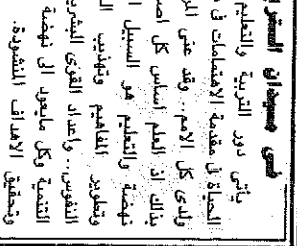 في ميدان
يأتي دور التربية والتعليم
الحياة في مقدمة الاهتمامات في
ولدى كل الامم.. وقد عني
بذلك اذ العلم اساس كل
نهضة والتعليم هو السبيل
وتطوير المفاهيم وتهذيب
النفوس.. واعداد القوى البشرية
التنمية وكل مايعود الى نهضة
وتحقيق الاهداف المنشودة.